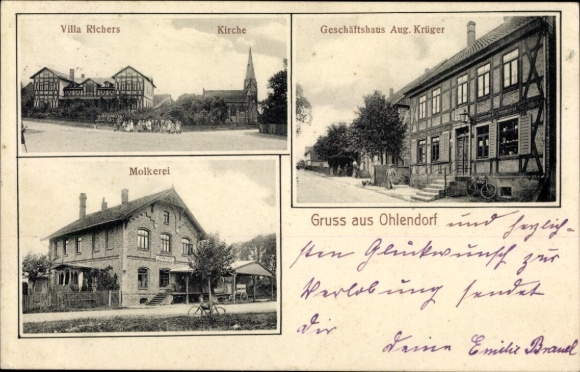 Villa Richers Kirche
Geschäftshaus Aug. Krüger
Molkerei
Gruss aus Ohlendorf und herzlich-
sten Glückwunsch zur
Verlobung sendet
Dir deine Emilie